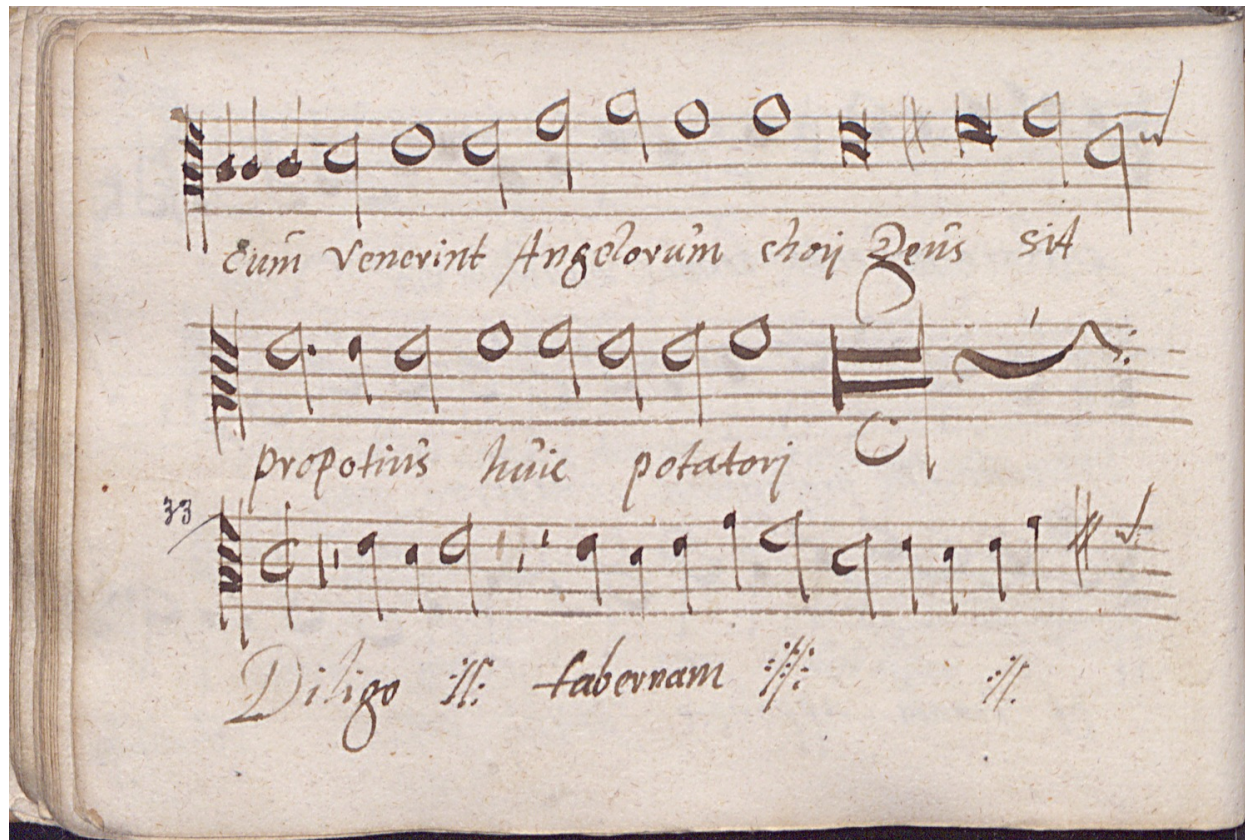 Cum venerint Angelorum chorj Deus sit
propotius huic potatorj
33
Diligo :||: tabernam :||: :||: